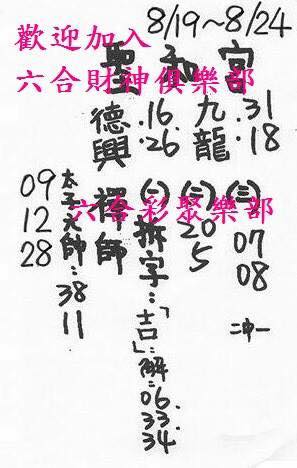 8/19~8/24
歡迎加入
聖和宮
六合財神俱樂部
九龍
.31
.18
德興禪師
.16
.26
(三)
07
08
二中一
(三)
20
5
(二)拆字:「吉」:解:06.
33.
34
六合彩聚樂部
太子元帥:38
11
09
12
28